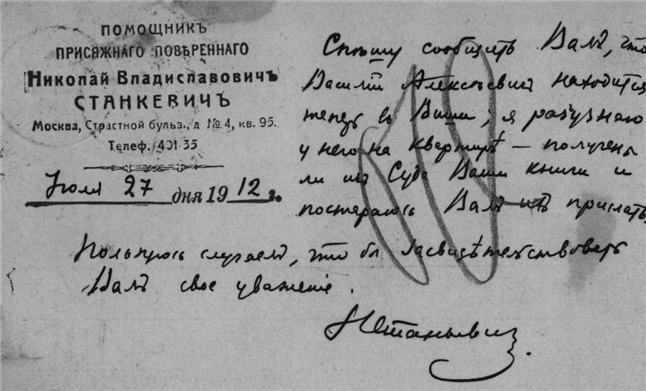 ПОМОЩНИКЪ
ПРИСЯЖНАГО ПОВѢРЕННАГО
Николай Владиславовичъ
СТАНКЕВИЧЪ
Москва, Страстной бульв., д № 4, кв. 95.
Телеф. 401 35
Іюля 27 дня 1912 г.
Спѣшу сообщить Вамъ, что
Василій Алексѣевичъ находится
теперь въ Виши, я разузнаю
у него на квартирѣ — получены
ли изъ Суда Ваши книги и
постараюсь Вамъ ихъ прислать.
Пользуюсь случаемъ, что бы засвидѣтельствовать
Вамъ свое уваженіе.
НСтанкевичъ